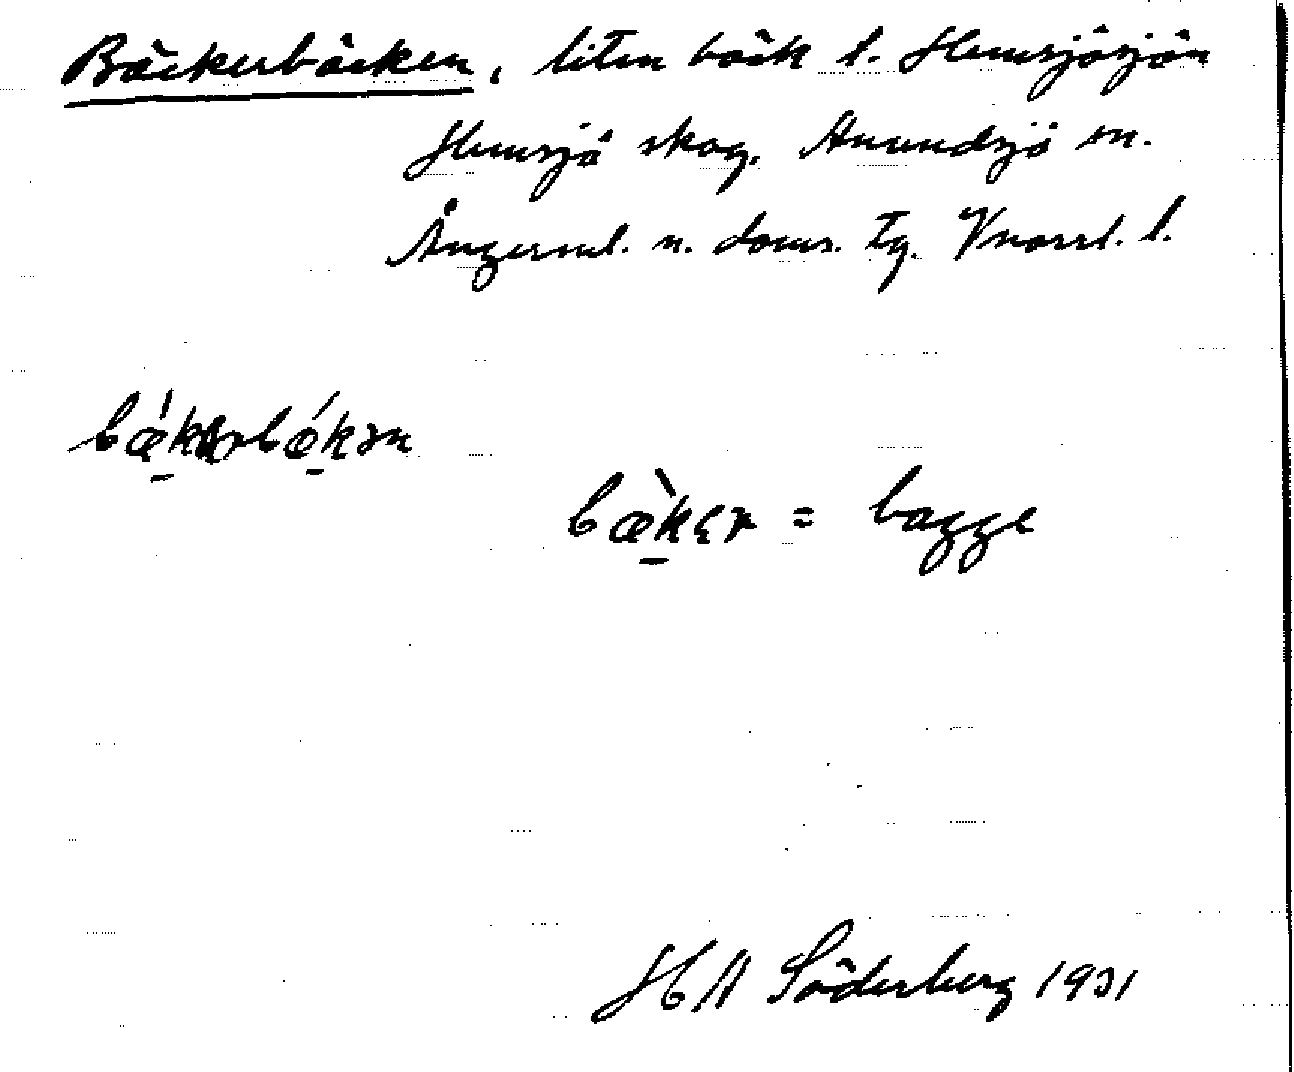 Bäckerbäcken, liten bäck l. Hemsjösjön
Hemsjö skog, Anundsjö sn.
Ångerml. n. doms. Tg. Vnorrl. l.
bæ̀ker = bagge
HA Söderberg 1931